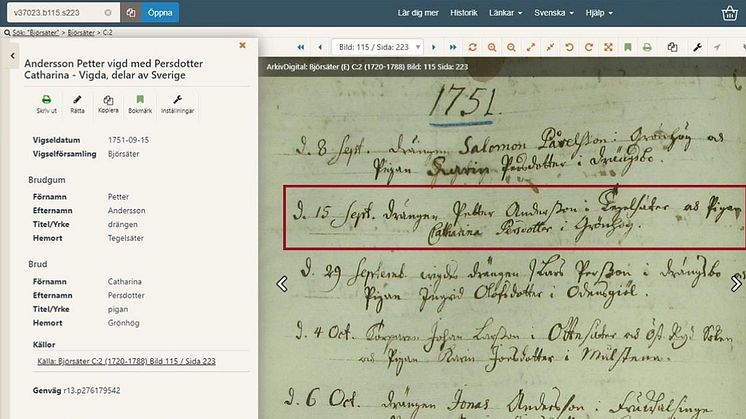 v37023.b115.s223
Öppna
Lär dig mer Historik Länkar Svenska Hjälp
Sök: "Björsäter" > Björsäter > C:2
Andersson Petter vigd med Persdotter
Catharina - Vigda, delar av Sverige
Skriv ut Rätta Kopiera Bokmärk Inställningar
Vigseldatum 1751-09-15
Vigselförsamling Björsäter
Brudgum
Förnamn Petter
Efternamn Andersson
Titel/Yrke drängen
Hemort Tegelsäter
Brud
Förnamn Catharina
Efternamn Persdotter
Titel/Yrke pigan
Hemort Grönhög
Källor
Källa: Björsäter C:2 (1720-1788) Bild 115 / Sida 223
Genväg r13.p276179542
Bild: 115 / Sida: 223
ArkivDigital: Björsäter (E) C:2 (1720-1788) Bild: 115 Sida: 223
1751.
d. 8 Sept. drängen Salomon Påvelsson i Grönhög
Pigan Karin Persdotter i
d. 15 Sept. drängen Petter Andersson i Tegelsäter Pigan
Catharina Persdotter i Grönhög.
d. 29 Septemb. vigdes drängen Lars Persson i
Pigan Ingrid Olofsdotter i
d. 4 Oct. Johan Larsson i
Pigan Karin i
d. 6 Oct. drängen Jonas Andersson i